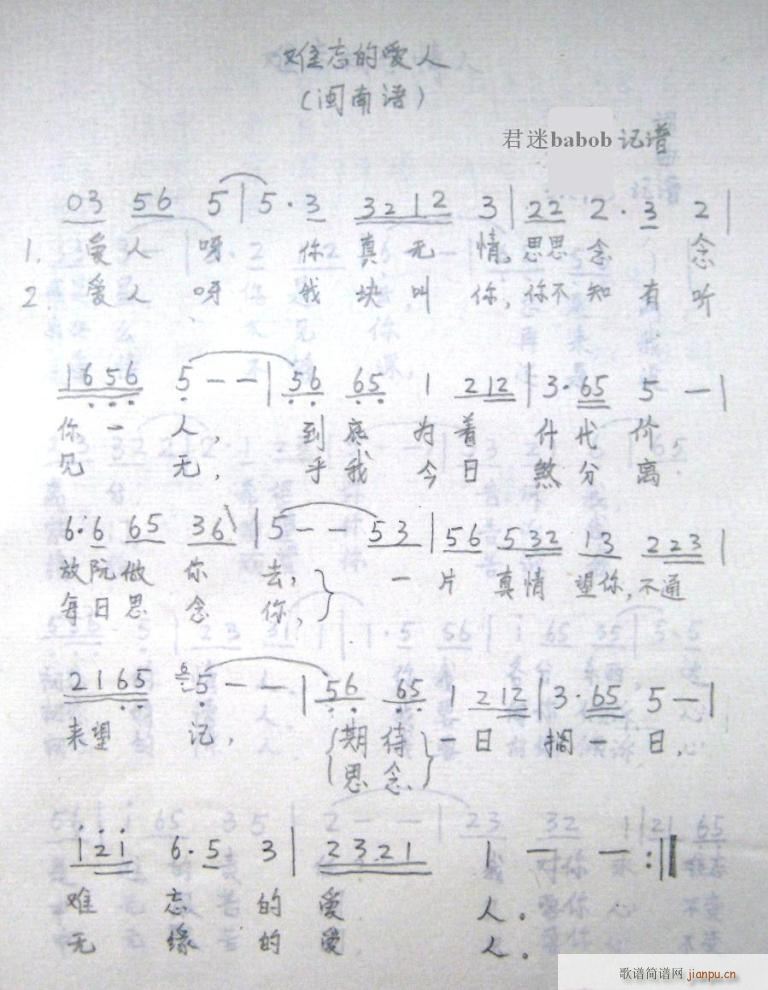 难忘的爱人
(闽南语)
君迷babob 记谱
03 56 5 | 5 · 3 3212 3 | 22 2 · 3 2 |
1. 爱人 呀 你 真 无 情, 思思 念 念
2. 爱人 呀 我 块 叫 你, 你不 知 有 听
1656 5 — — | 56 65 1 212 | 3 · 65 5 — |
你 一 人, 到 底 为 着 什 代 价
见 无, 乎 我 今 日 煞 分 离
6 · 6 65 36 | 5 — — 53 | 56 532 13 223 |
放阮做 你 去, 一 片 真情 望你, 不通
每日思 念 你,
2165 5 — — | 56 65 1 212 | 3 · 65 5 — |
来望 记, 期待 一 日 搁 一 日,
思念
121 6 · 5 3 | 2321 1 — — :||
难 忘 的 爱 人。
无 缘 的 爱 人。
歌谱简谱网 jianpu.cn